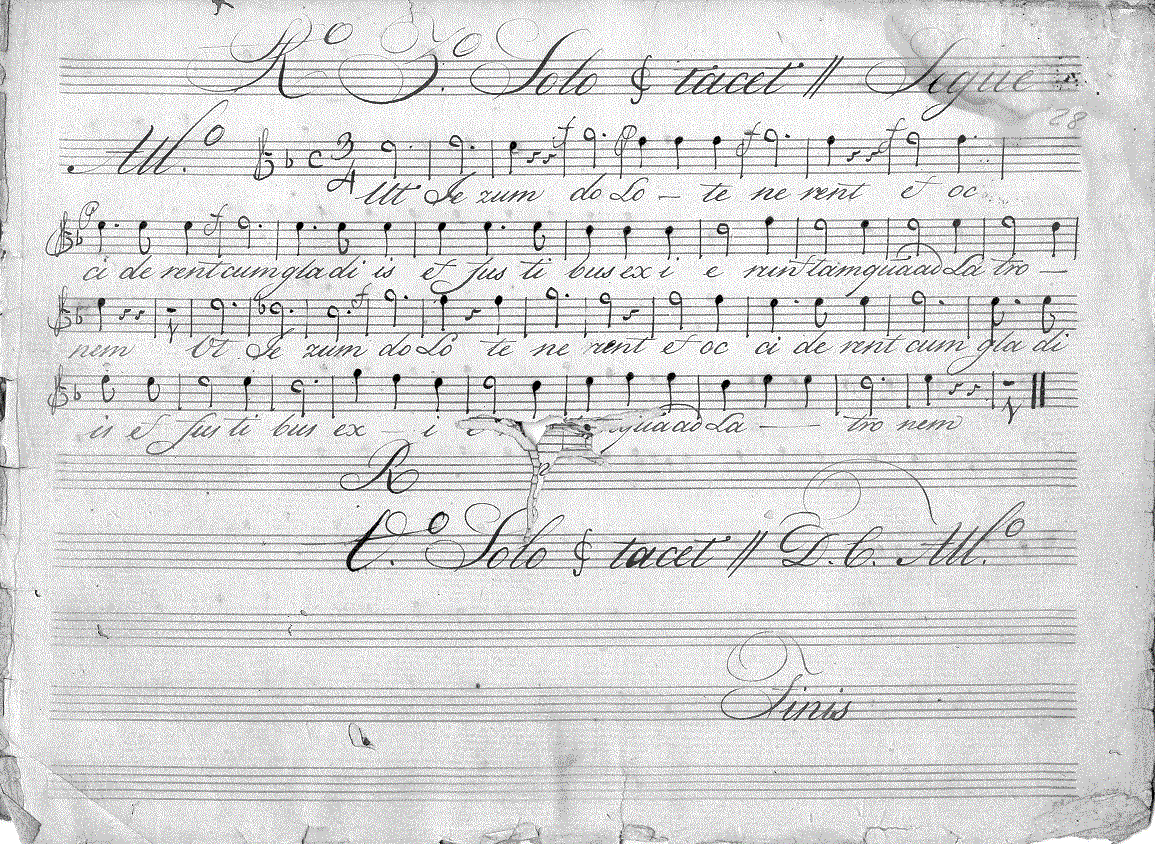 R.º 3.º Solo & tacet // Segue
28
All.º C 3/4
Ut Je zum do Lo – te ne rent et oc
ci de rent cum gla di is et fus ti bus ex i e runt tamquaad La tro –
nem Ut Je zum do Lo te ne rent et oc ci de rent cum gla di
is et fus ti bus ex – i quaad La – – tro nem
R
V.º Solo & tacet // D.C. All.º
Finis